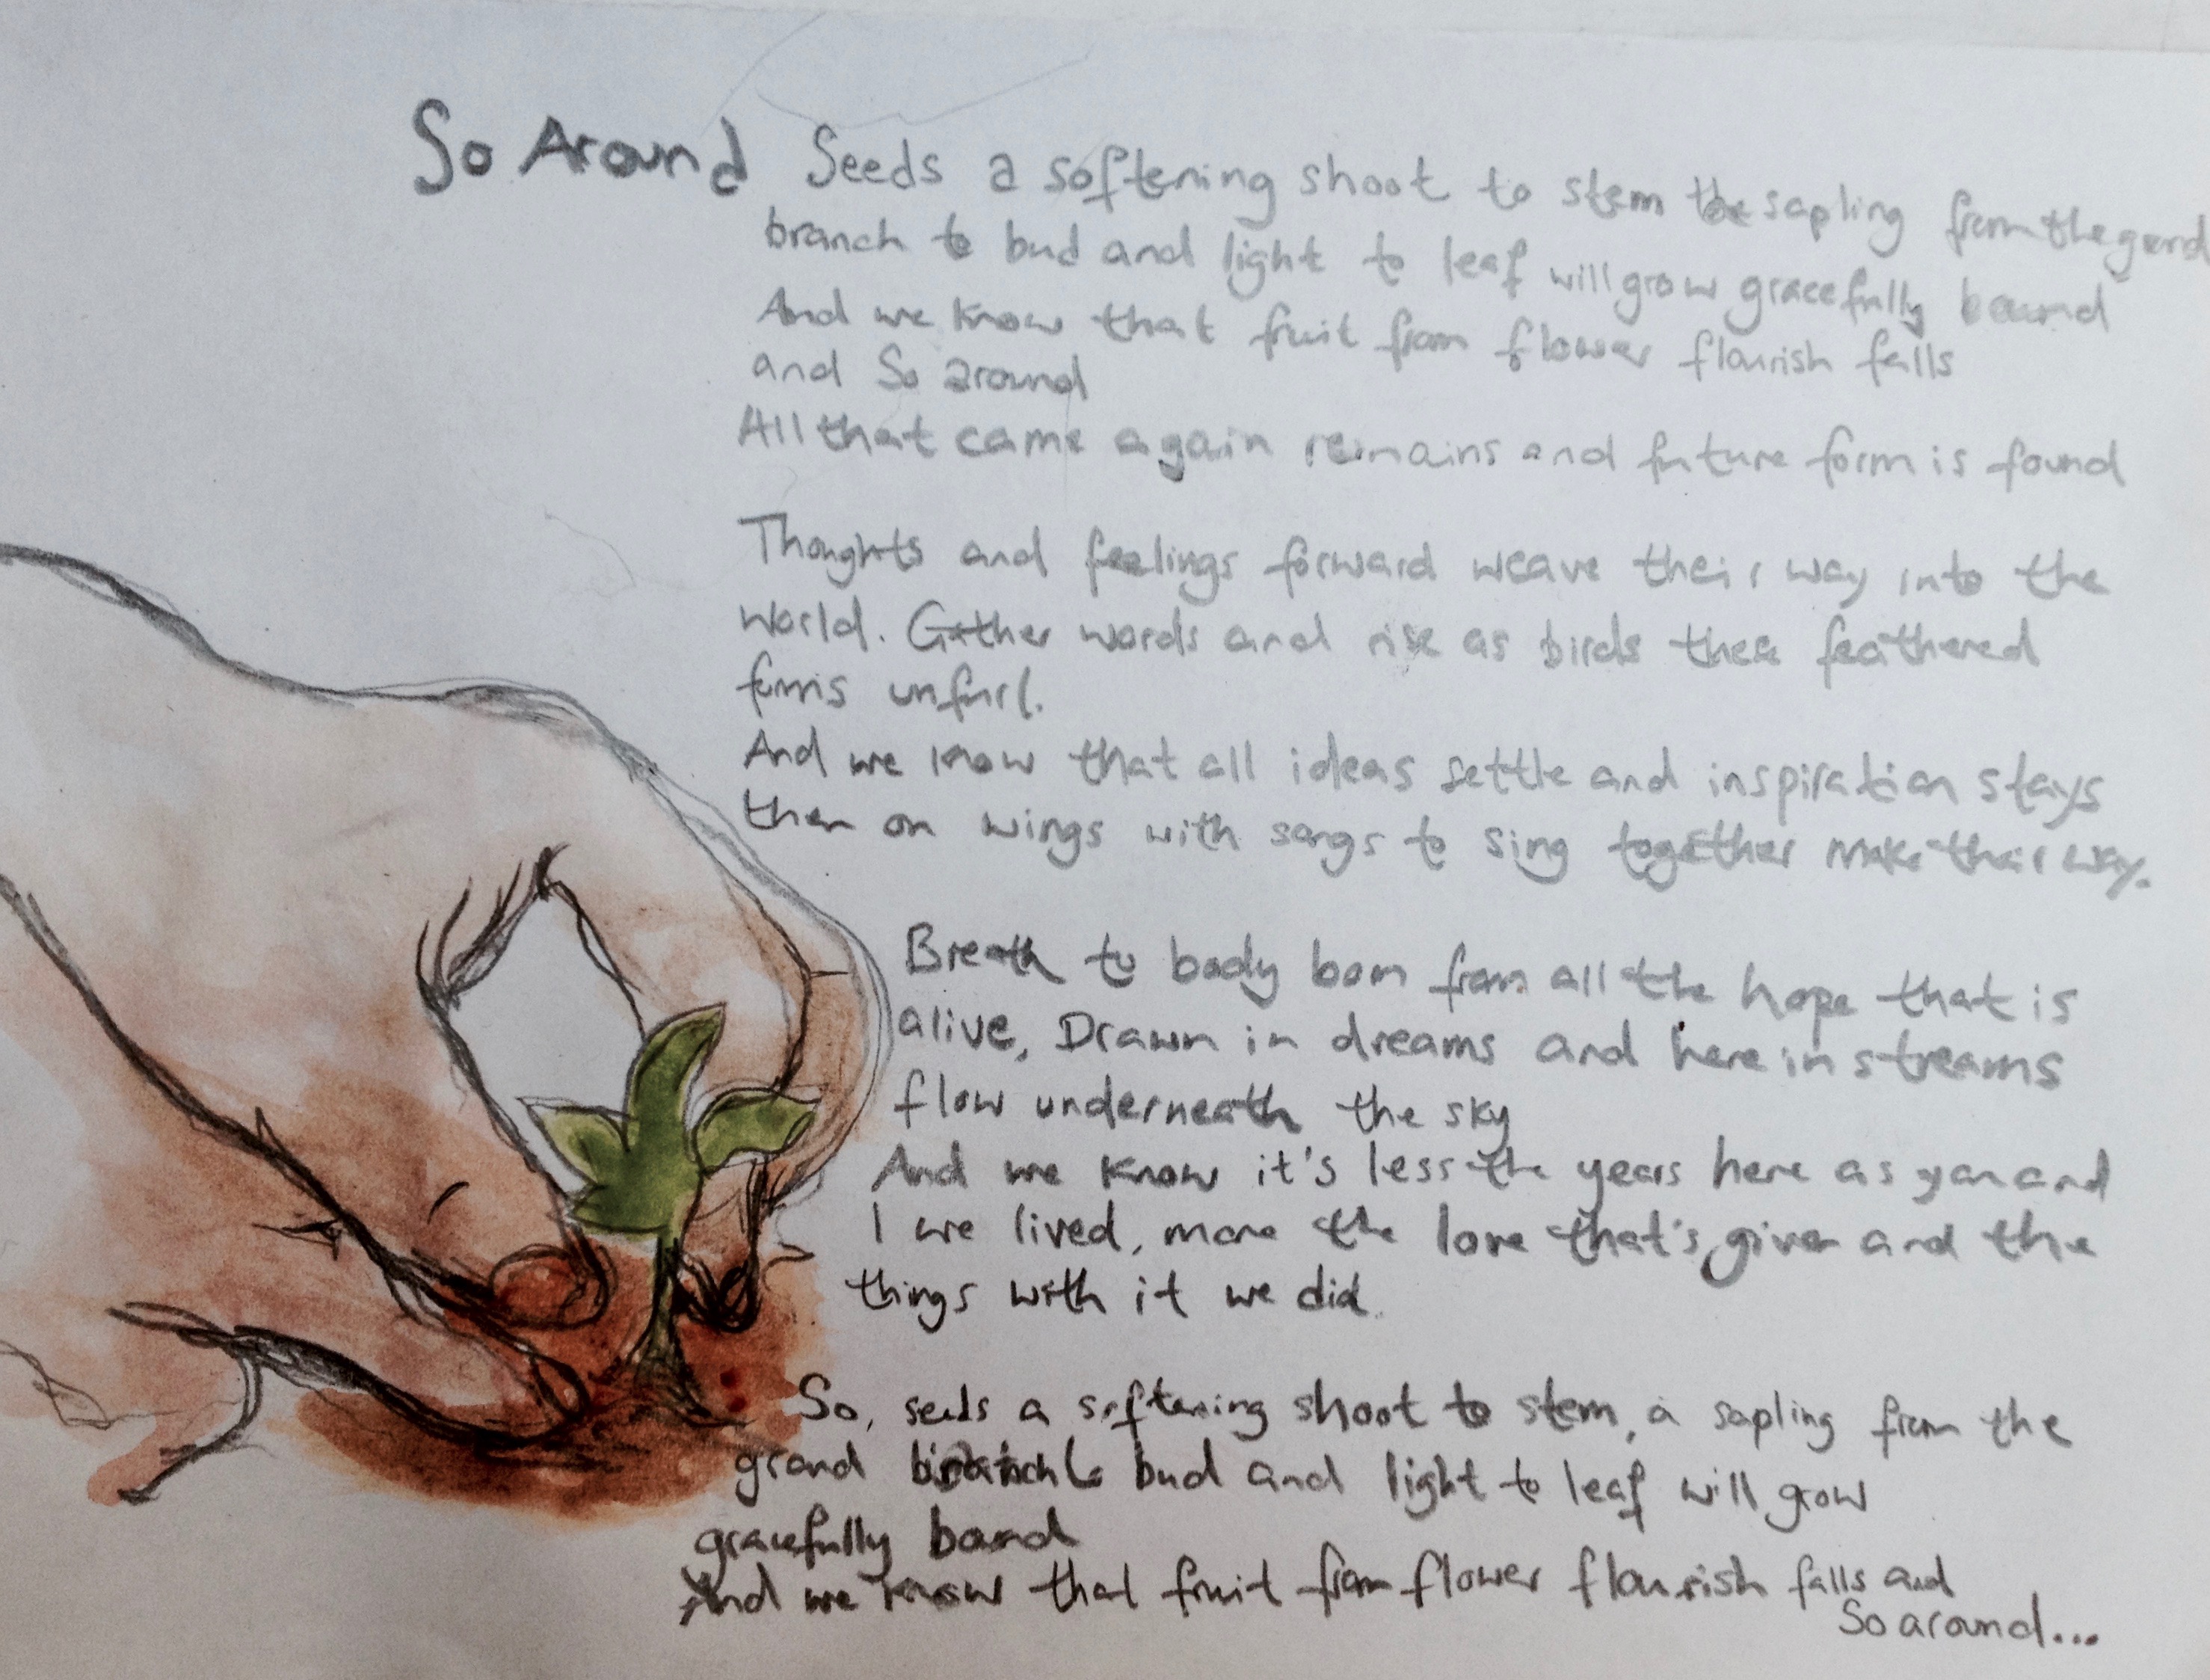 So Around
Seeds a softening shoot to stem the sapling from the ground
branch to bud and light to leaf will grow gracefully bound
And we know that fruit from flower flourish falls
and So around
All that came again remains and future form is found
Thoughts and feelings forward weave their way into the
World. Gather words and rise as birds these feathered
forms unfurl.
And we know that all ideas settle and inspiration stays
then on wings with songs to sing together make their way.
Breath to body born from all the hope that is
alive, Drawn in dreams and here in streams
flow underneath the sky
And we know it's less the years here as you and
I we lived, more the love that's given and the
things with it we did.
So, seeds a softening shoot to stem, a sapling from the
ground branch to bud and light to leaf will grow
gracefully bound
And we know that fruit from flower flourish falls and
So around...